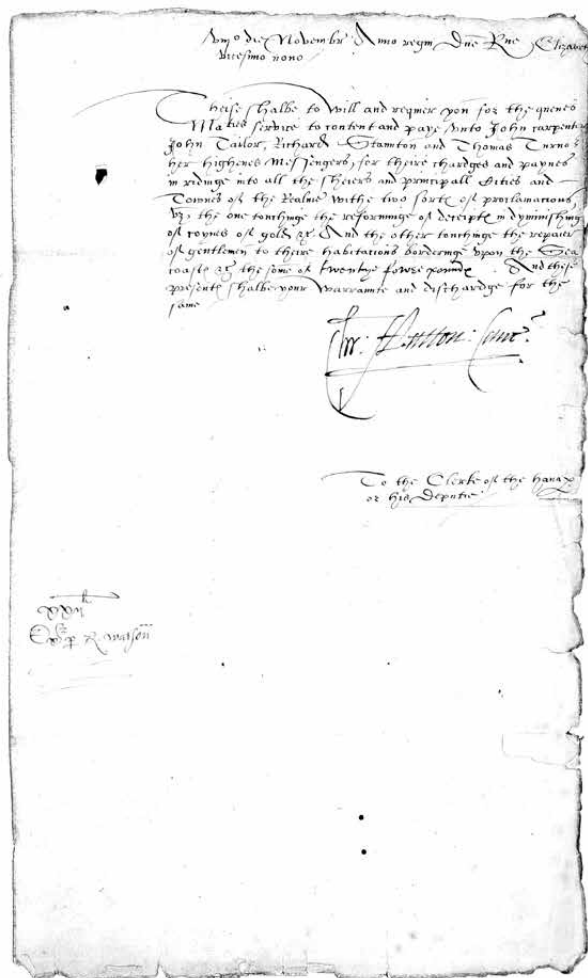 viijo die Novembr Anno regni Dne Rne Elizabeth
vicesimo nono
Theise shalbe to will and requier you for the quenes
Maties service to content and paye unto John Carpenter
John Tailor, Richard Stamton and Thomas Turnor
her highenes Messengers, for theire chardges and paynes
in ridinge into all the sheiers and principall Cities and
Townes of the Realme withe two sortes of proclamacions
vz, the one touchinge the reforminge of deceiptes in dyminishing
of coynes of gold &c. And the other touchinge the repaier
of gentlemen to theire habitacions borderinge upon the Sea
coastes &c the some of twentye fowre poundes. And these
presentes shalbe your warraunte and dischardge for the
same
Chr: Hatton: Canc.
To the Clerke of the hanap
or his Deputie
R. watson